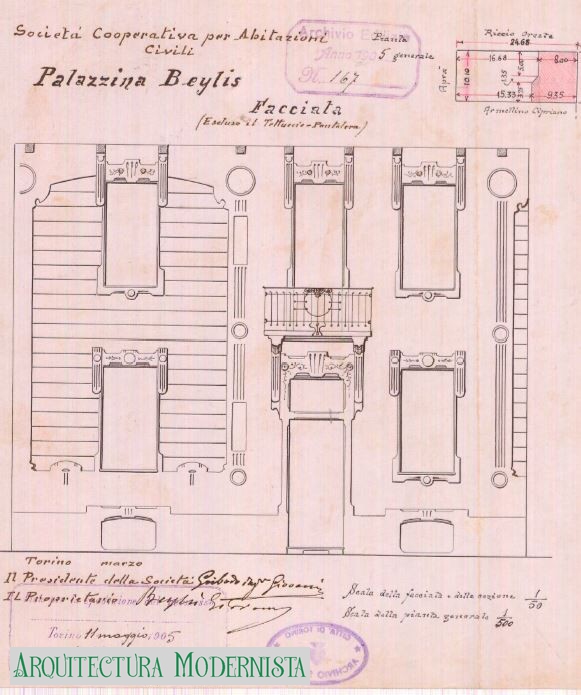 Società Cooperativa per Abitazioni
Civili
Palazzina Beylis
Facciata
(Escluso il Tettuccio-Pantalera)
Archivio
Anno 1905
N. 167
Pianta
generale
Riccio Oreste
24.68
16.68
8.00
10.10
5.00
15.33
9.35
Aprà
Armellino Cipriano
Torino marzo
Il Presidente della Società
Il Proprietario
Torino 11 maggio 1905
Scala della facciata e della sezione 1/50
Scala della pianta generale 1/500
CITTÀ DI TORINO
ARCHIVIO
ARQUITECTURA MODERNISTA